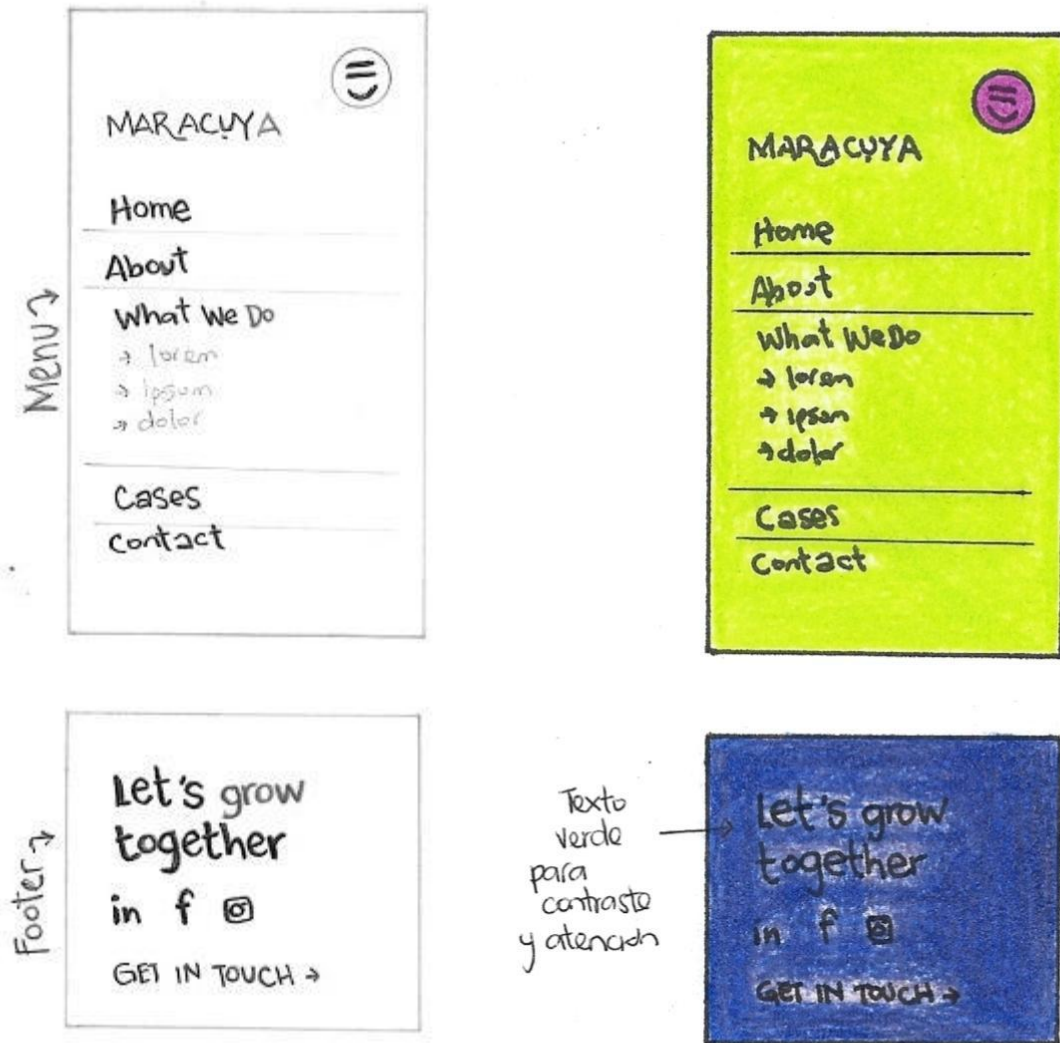 MARACUYA
Home
About
What We Do
→ lorem
→ ipsum
→ dolor
Cases
Contact
Menu
MARACUYA
Home
About
What We Do
→ lorem
→ ipsum
→ dolor
Cases
Contact
Let's grow
together
in f
GET IN TOUCH →
Footer
Texto
verde
para
contraste
y atención
Let's grow
together
in f
GET IN TOUCH →